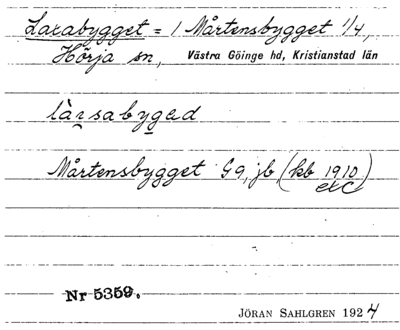 Laxabygget = 1 Mårtensbygget 1/4,
Hörja sn, Västra Göinge hd, Kristianstad län
làn̥sabyged
Mårtensbygget G9, jb, (kb 1910 etc)
Nr 5359.
JÖRAN SAHLGREN 1924